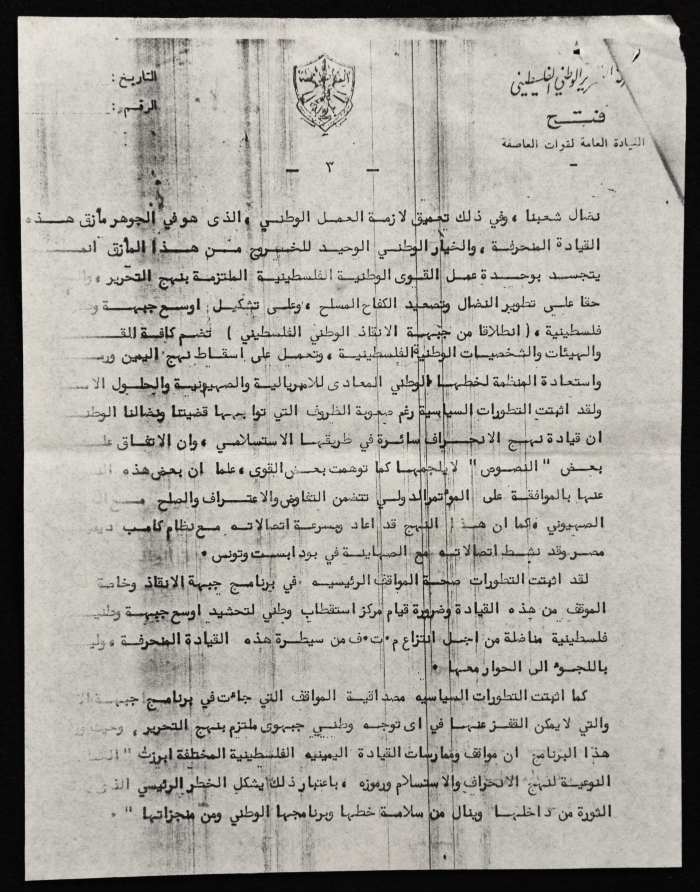 التاريخ :
الرقم :
الوطني الفلسطيني
فتح
القيادة العامة لقوات العاصفة
— ٣ —
نضال شعبنا ، وفي ذلك تعميق لازمة العمل الوطني ، الذى هو في الجوهر مأزق هذه
القيادة المنحرفة ، والخيار الوطني الوحيد للخروج من هذا المأزق
يتجسد بوحدة عمل القوى الوطنية الفلسطينية الملتزمة بنهج التحرير ،
حقا على تطوير النضال وتصعيد الكفاح المسلح ، وعلى تشكيل اوسع جبهة
فلسطينية ، ( انطلاقا من جبهة الانقاذ الوطني الفلسطيني ) تضم كافة
والهيئات والشخصيات الوطنية الفلسطينية ، وتعمل على اسقاط نهج اليمين
واستعادة المنظمة لخطها الوطني المعادى للامبريالية والصهيونية والحلول
ولقد اثبتت التطورات السياسية رغم صعوبة الظروف التي تواجهها قضيتنا ونضالنا
ان قيادة نهج الانحراف سائرة في طريقها الاستسلامي ، وان الاتفاق
بعض " النصوص " لا يلجمها كما توهمت بعض القوى ، علما ان بعض هذه
عنها بالموافقة على المؤتمر الدولي تتضمن التفاوض والاعتراف والصلح مع
الصهيوني ، كما ان هذا النهج قد اعاد وبسرعة اتصالاته مع نظام كامب
مصر وقد نشط اتصالاته مع الصهاينة في بودابست وتونس .
لقد اثبتت التطورات صحة المواقف الرئيسيه في برنامج جبهة الانقاذ وخاصة
الموقف من هذه القيادة وضرورة قيام مركز استقطاب وطني لتحشيد اوسع جبهة
فلسطينية مناضلة من اجل انتزاع م.ت.ف من سيطرة هذه القيادة المنحرفة ،
باللجوء الى الحوار معها .
كما اثبتت التطورات السياسيه مصداقية المواقف التي جائت في برنامج جبهة
والتي لا يمكن القفز عنها في اى توجه وطني جبهوى ملتزم بنهج التحرير ،
هذا البرنامج ان مواقف وممارسات القيادة اليمينيه الفلسطينية المختلفة ابرزت "
النوعية لنهج الانحراف والاستسلام ورموزه ، باعتبار ذلك يشكل الخطر الرئيسي
الثورة من داخلها وينال من سلامة خطها وبرنامجها الوطني ومن منجزاتها " .